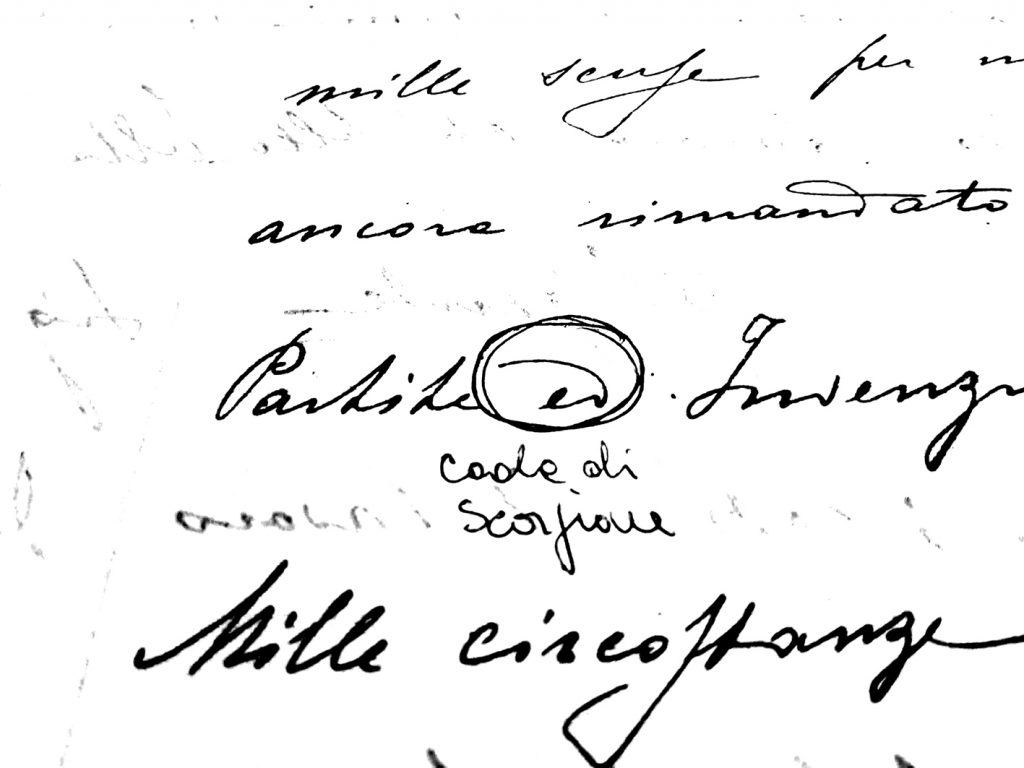 mille scuse per
ancora rimandato
Partite ed Invenz
coda di
Scorpione
Mille circostanze